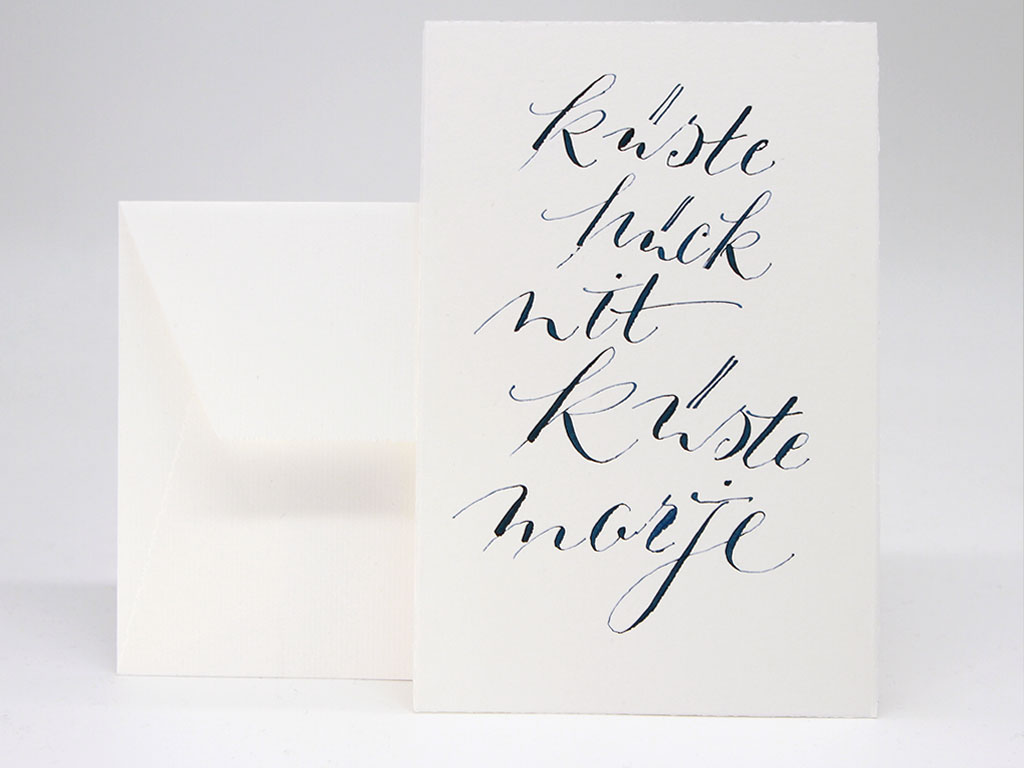 küste
hück
nit
küste
morje